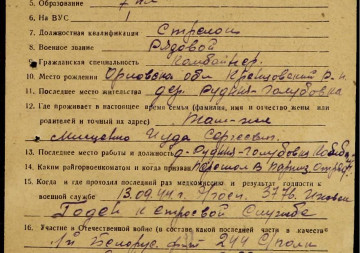 5. Образование 7 кл
6. На ВУС 1
7. Должностная квалификация Стрелок
8. Военное звание Рядовой
9. Гражданская специальность Комбайнер.
10. Место рождения Орловская обл р-н
11. Последнее место жительства дер. Рудня-Голубовка
12. Где проживает в настоящее время семья (фамилия, имя и отчество жены или
родителей и точный на адрес) Там-же
Сергеевич.
13. Последнее место работы и должность д-Рудня-Голубовка
14. Каким райгорвоенкоматом и когда призван
15. Когда и где проходил последний раз медкомиссию и результат годности к
военной службе 13.09.44 г. Э/госп. 3776.
Годен к строевой Службе
16. Участие в Отечественной войне (в составе какой последней части в качестве
1й Белорус. фронт 244 С/полк